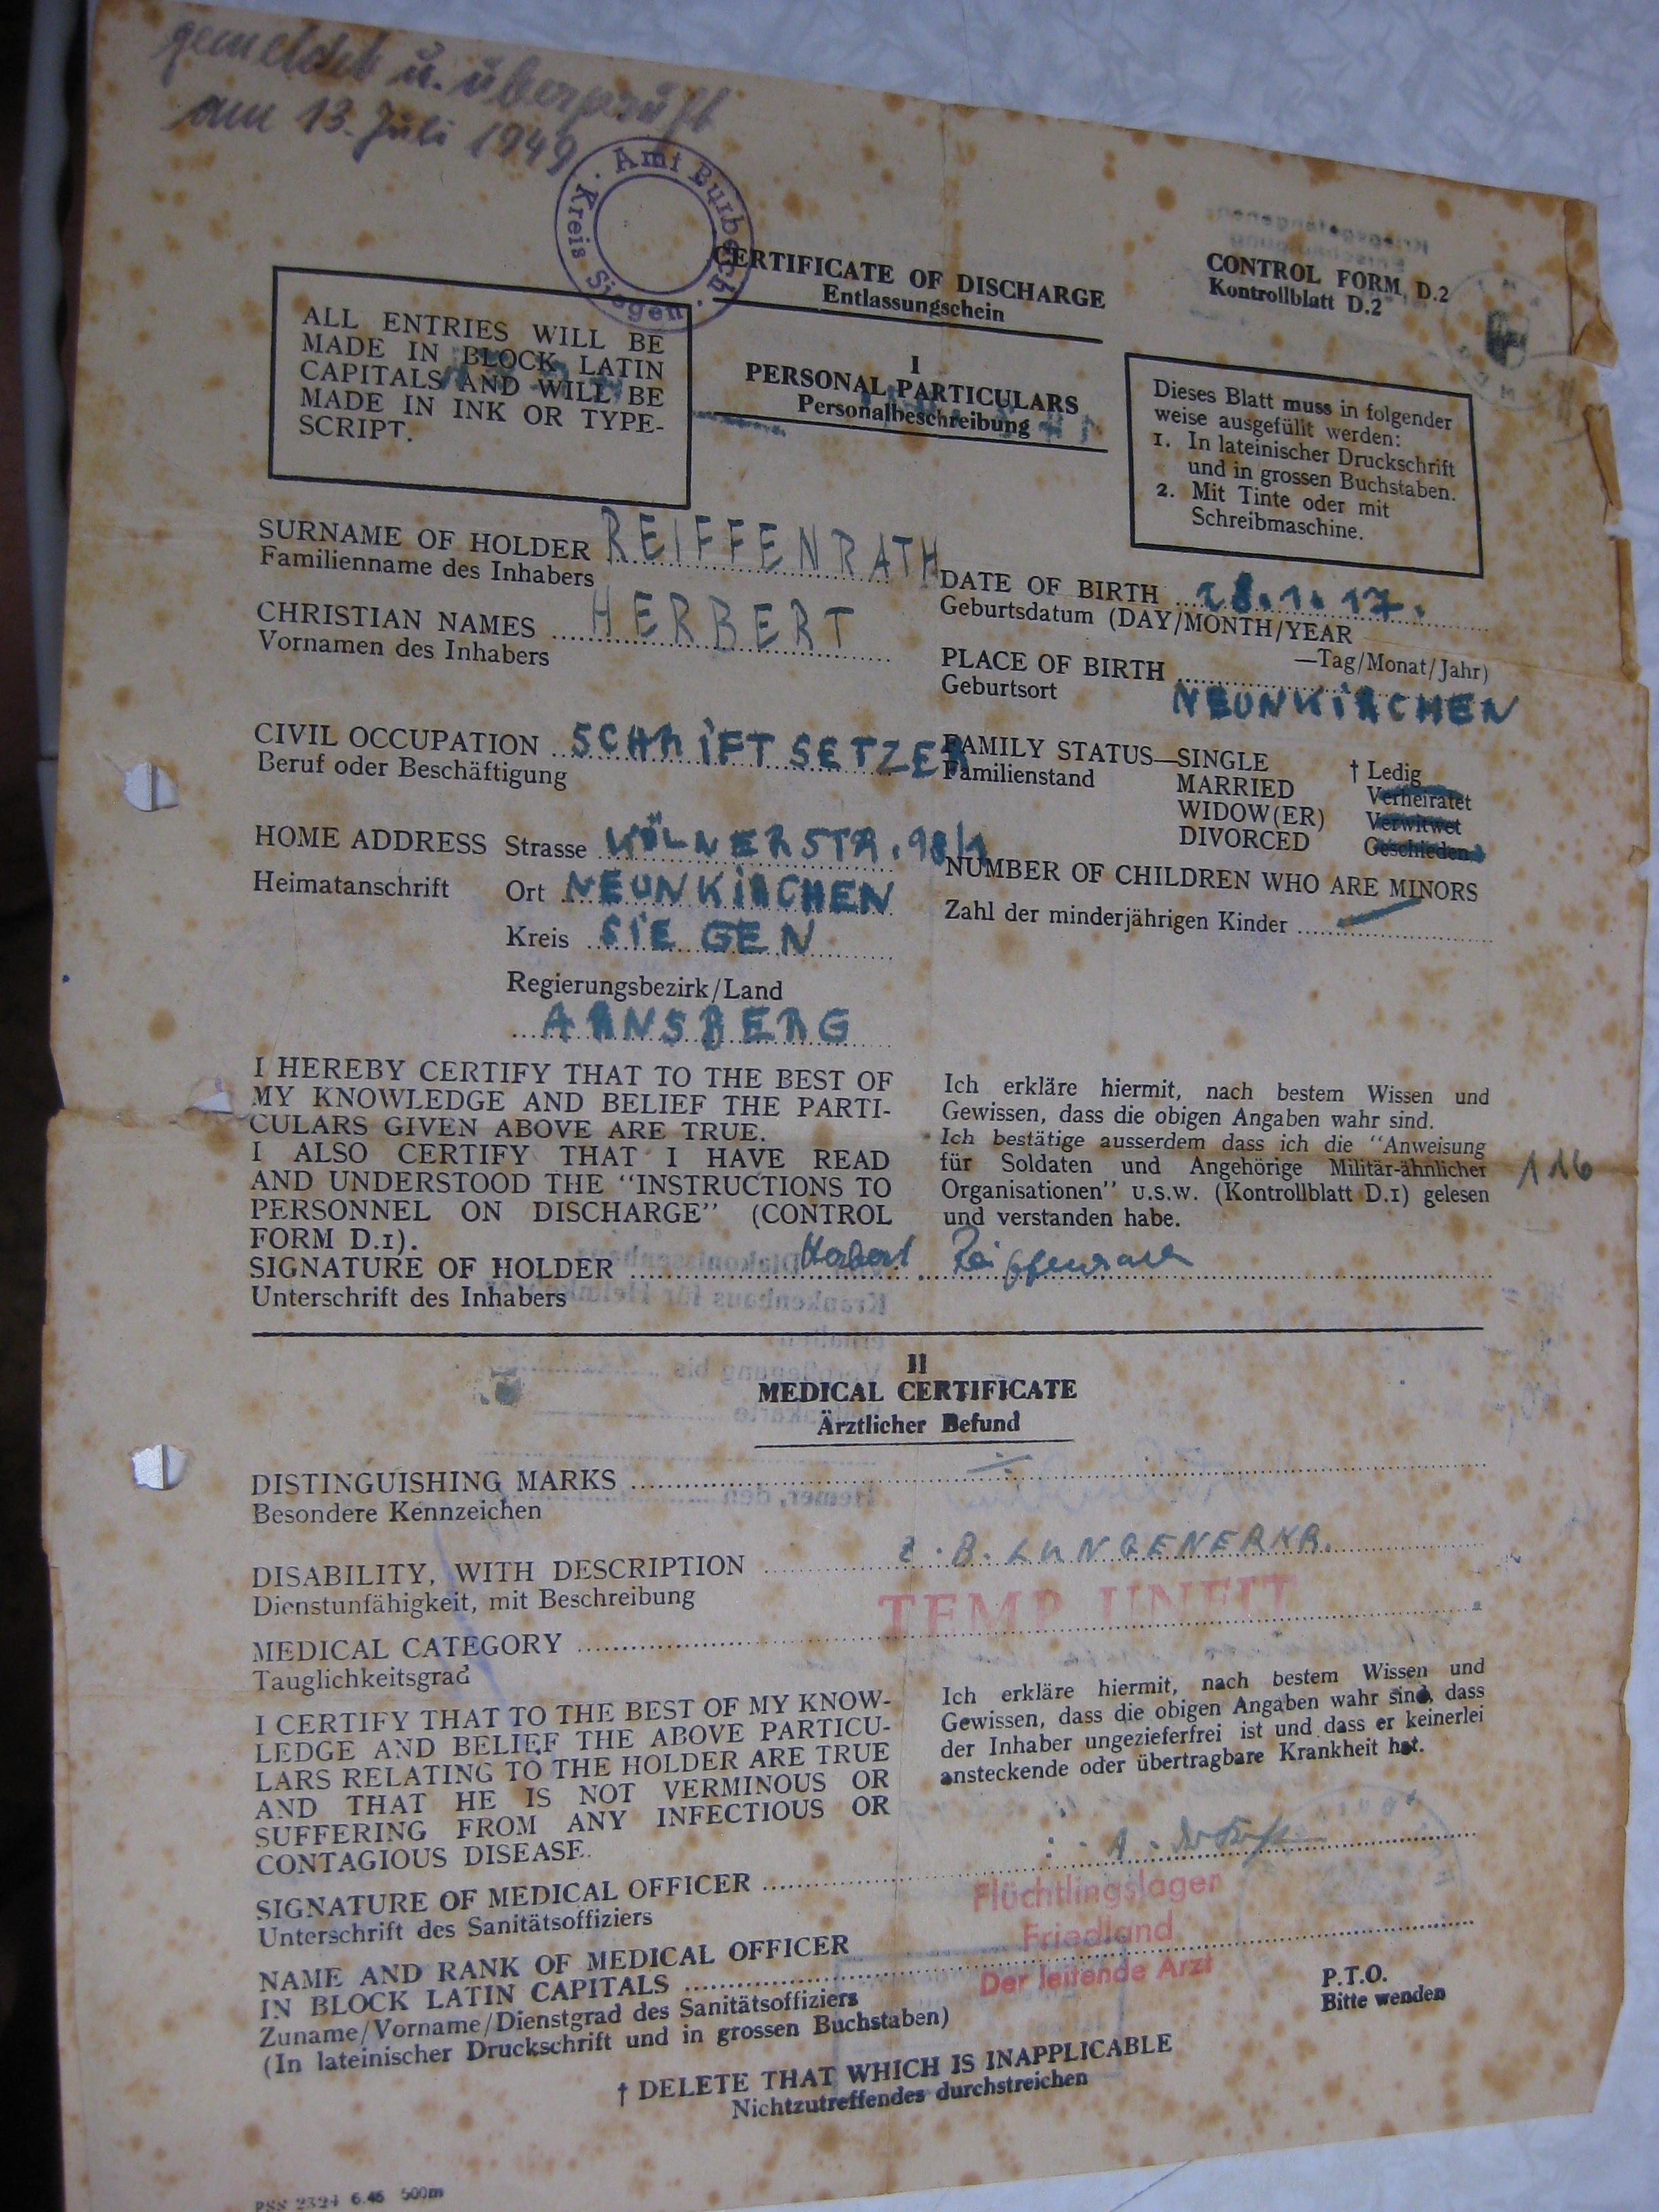 gemeldet u. überprüft
am 13. Juli 1949
Amt Burbach
Kreis Siegen
CERTIFICATE OF DISCHARGE
Entlassungschein
CONTROL FORM D.2
Kontrollblatt D.2
ALL ENTRIES WILL BE
MADE IN BLOCK LATIN
CAPITALS AND WILL BE
MADE IN INK OR TYPE-
SCRIPT.
I
PERSONAL PARTICULARS
Personalbeschreibung
Dieses Blatt muss in folgender
weise ausgefüllt werden:
1. In lateinischer Druckschrift
und in grossen Buchstaben.
2. Mit Tinte oder mit
Schreibmaschine.
SURNAME OF HOLDER REIFFENRATH
Familienname des Inhabers
CHRISTIAN NAMES HERBERT
Vornamen des Inhabers
DATE OF BIRTH 28.1.17.
Geburtsdatum (DAY/MONTH/YEAR
—Tag/Monat/Jahr)
PLACE OF BIRTH
Geburtsort NEUNKIRCHEN
CIVIL OCCUPATION SCHRIFTSETZER
Beruf oder Beschäftigung
FAMILY STATUS—SINGLE † Ledig
Familienstand MARRIED Verheiratet
WIDOW(ER) Verwitwet
DIVORCED Geschieden
HOME ADDRESS Strasse KÖLNERSTR. 98/1
Heimatanschrift Ort NEUNKIRCHEN
Kreis SIEGEN
Regierungsbezirk/Land
ARNSBERG
NUMBER OF CHILDREN WHO ARE MINORS
Zahl der minderjährigen Kinder
I HEREBY CERTIFY THAT TO THE BEST OF
MY KNOWLEDGE AND BELIEF THE PARTI-
CULARS GIVEN ABOVE ARE TRUE.
I ALSO CERTIFY THAT I HAVE READ
AND UNDERSTOOD THE "INSTRUCTIONS TO
PERSONNEL ON DISCHARGE" (CONTROL
FORM D.1).
Ich erkläre hiermit, nach bestem Wissen und
Gewissen, dass die obigen Angaben wahr sind.
Ich bestätige ausserdem dass ich die "Anweisung
für Soldaten und Angehörige Militär-ähnlicher
Organisationen" U.S.W. (Kontrollblatt D.1) gelesen
und verstanden habe.
116
SIGNATURE OF HOLDER Herbert Reiffenrath
Unterschrift des Inhabers
II
MEDICAL CERTIFICATE
Ärztlicher Befund
DISTINGUISHING MARKS
Besondere Kennzeichen
DISABILITY, WITH DESCRIPTION Z.B. LUNGENERKR.
Dienstunfähigkeit, mit Beschreibung
TEMP UNFIT
MEDICAL CATEGORY
Tauglichkeitsgrad
I CERTIFY THAT TO THE BEST OF MY KNOW-
LEDGE AND BELIEF THE ABOVE PARTICU-
LARS RELATING TO THE HOLDER ARE TRUE
AND THAT HE IS NOT VERMINOUS OR
SUFFERING FROM ANY INFECTIOUS OR
CONTAGIOUS DISEASE.
Ich erkläre hiermit, nach bestem Wissen und
Gewissen, dass die obigen Angaben wahr sind, dass
der Inhaber ungezieferfrei ist und dass er keinerlei
ansteckende oder übertragbare Krankheit hat.
SIGNATURE OF MEDICAL OFFICER
Unterschrift des Sanitätsoffiziers
Flüchtlingslager
Friedland
Der leitende Arzt
NAME AND RANK OF MEDICAL OFFICER
IN BLOCK LATIN CAPITALS
Zuname/Vorname/Dienstgrad des Sanitätsoffiziers
(In lateinischer Druckschrift und in grossen Buchstaben)
P.T.O.
Bitte wenden
† DELETE THAT WHICH IS INAPPLICABLE
Nichtzutreffendes durchstreichen
PSS 2324 6.46 500m